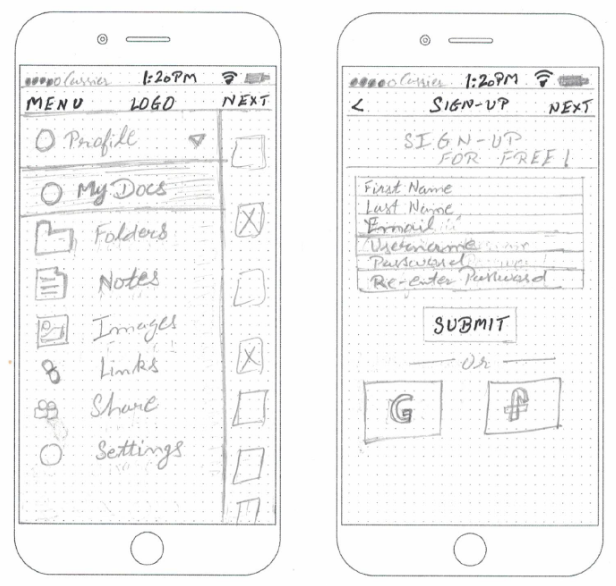 Carrier 1:20PM
MENU LOGO NEXT
Profile
My Docs
Folders
Notes
Images
Links
Share
Settings
Carrier 1:20PM
< SIGN-UP NEXT
SIGN-UP
FOR FREE!
First Name
Last Name
Email
Username
Password
Re-enter Password
SUBMIT
Or
G f